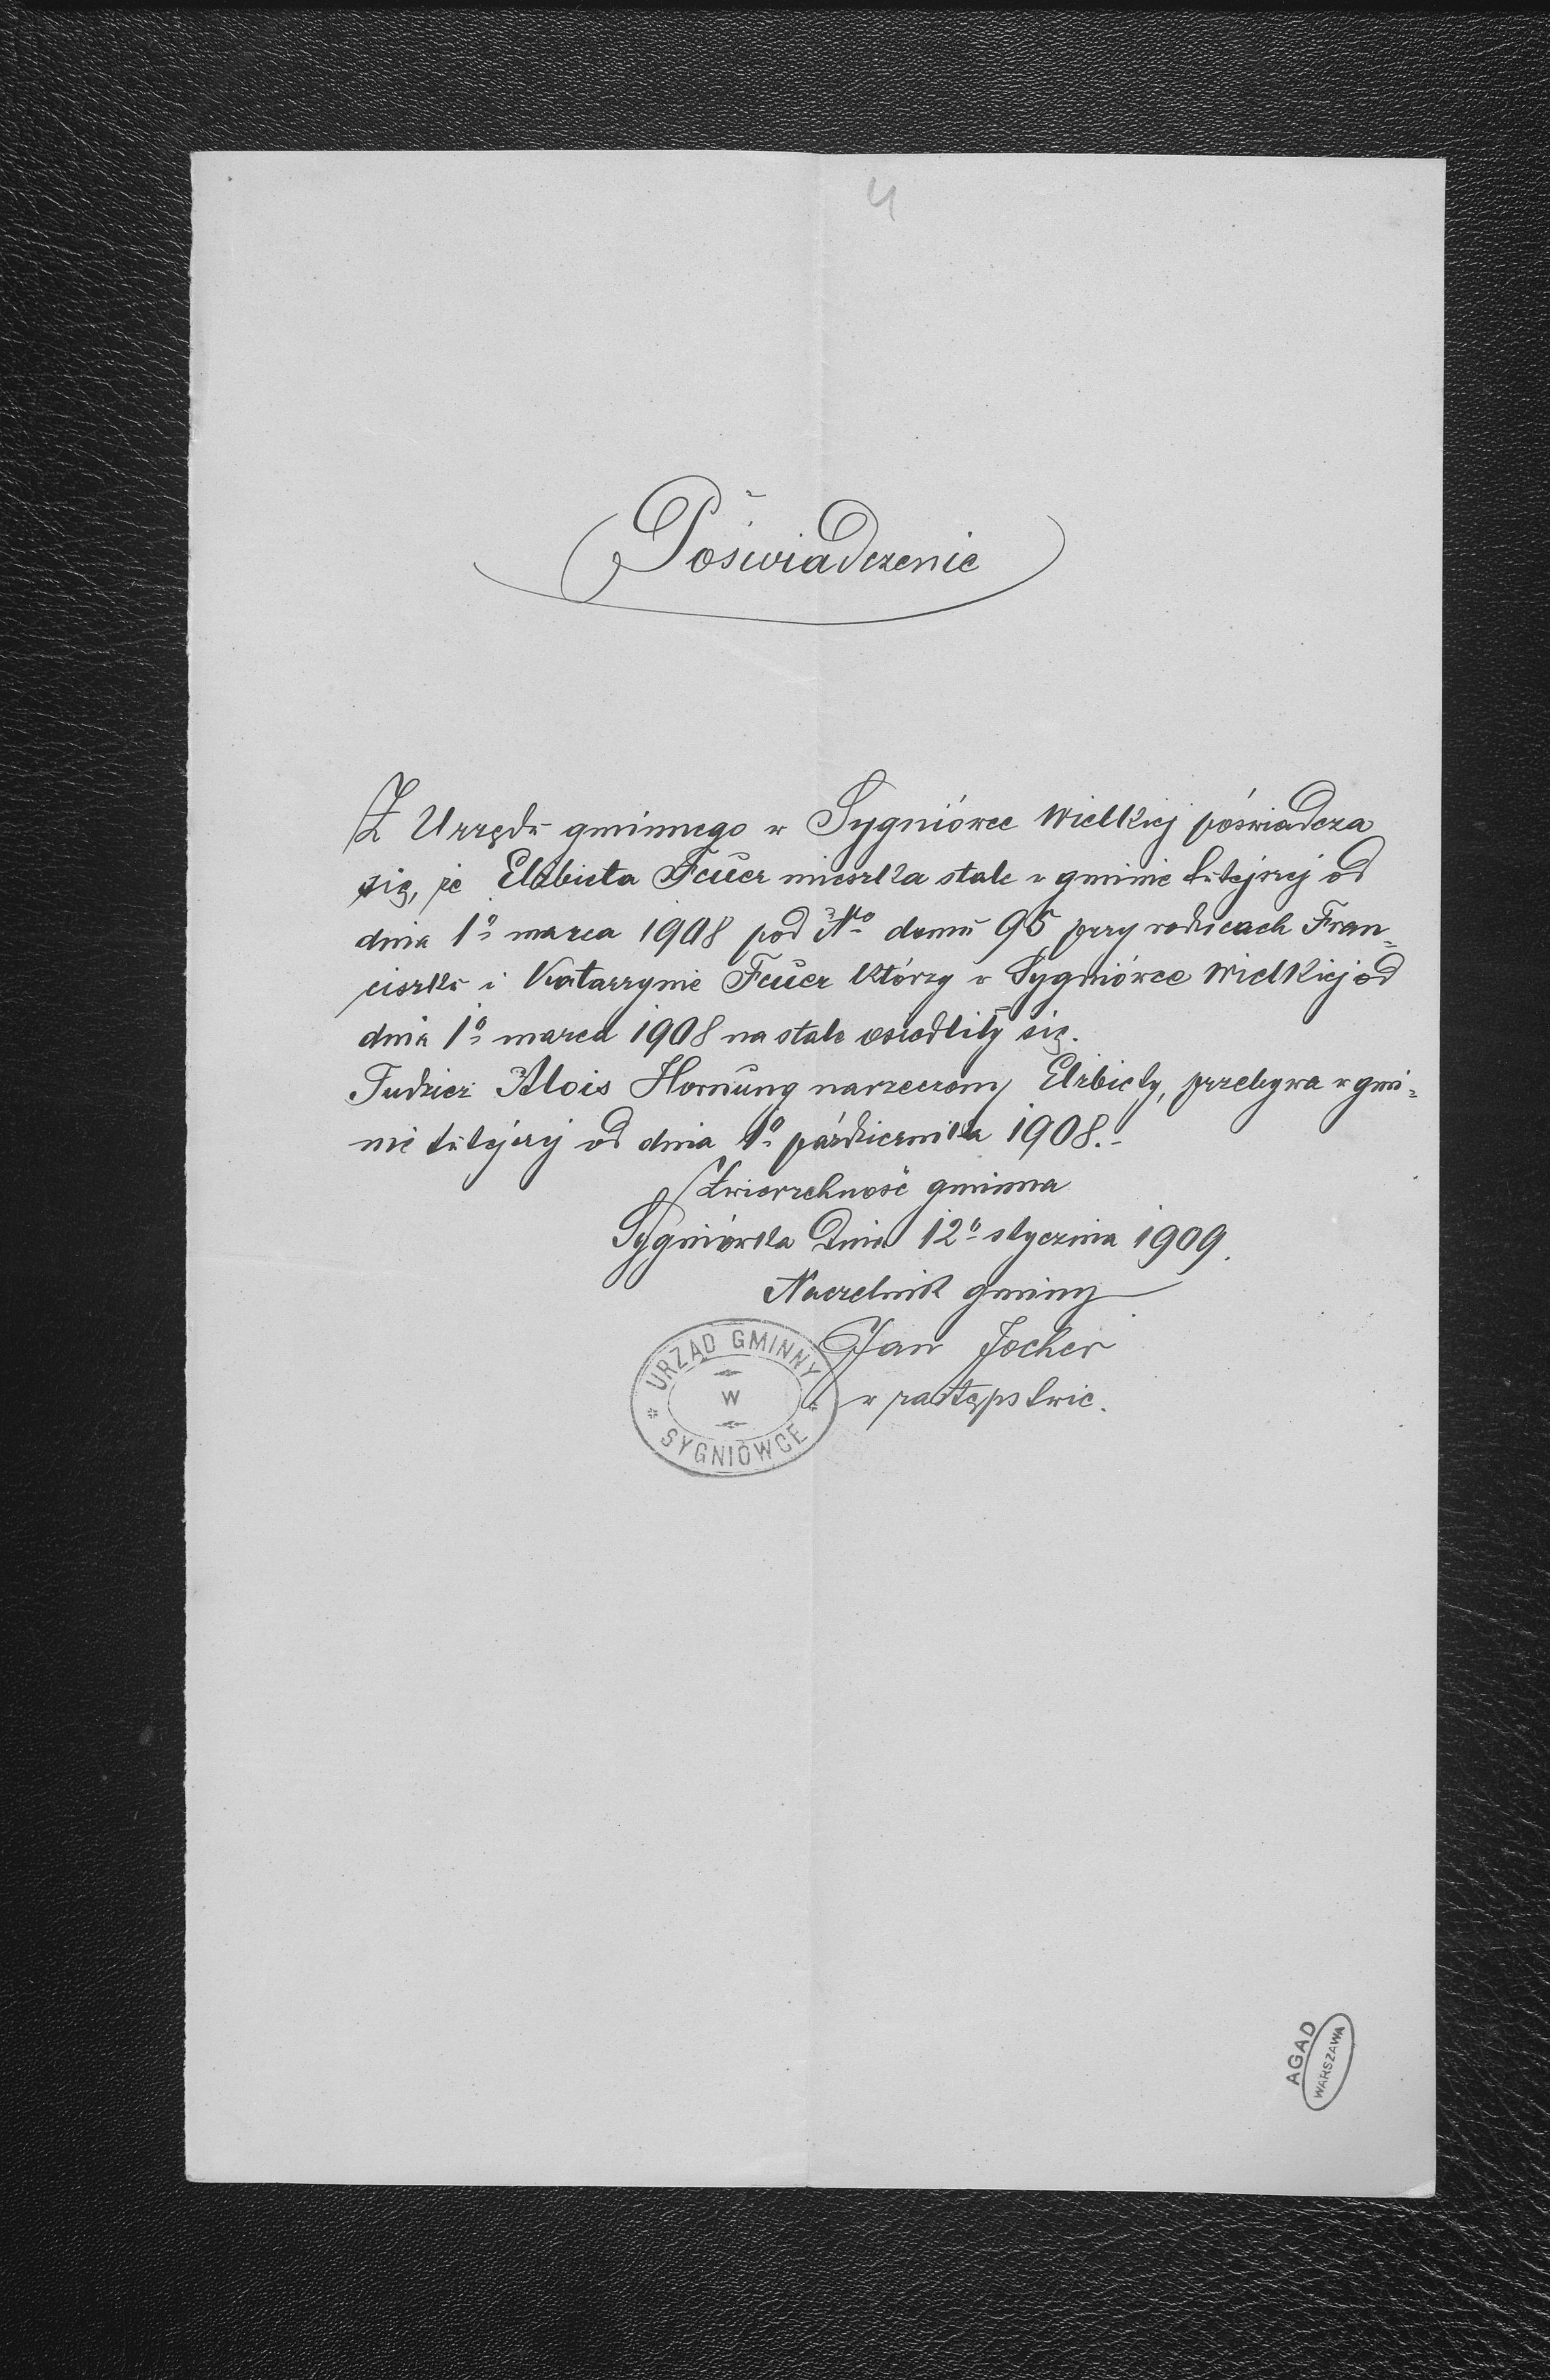 4
Poświadczenie
Z Urzędu gminnego w Sygniówce Wielkiej poświadcza
się, że Elżbieta Feuer mieszka stale w gminie tutejszej od
dnia 1º marca 1908 pod Nº domu 95 przy rodzicach Fran=
ciszku i Katarzynie Feuer którzy w Sygniówce Wielkiej od
dnia 1º marca 1908 na stale osiedlily się.
Tudzież Alois Hornung narzeczony Elżbiety, przebywa w gmi=
nie tutejszej od dnia 1º października 1908.-
Zwierzchność gminna
Sygniówka Dnia 12º stycznia 1909.
Naczelnik gminy
Jan Jocher
w zastępstwie.
URZĄD GMINNY
W
SYGNIÓWCE
AGAD
WARSZAWA